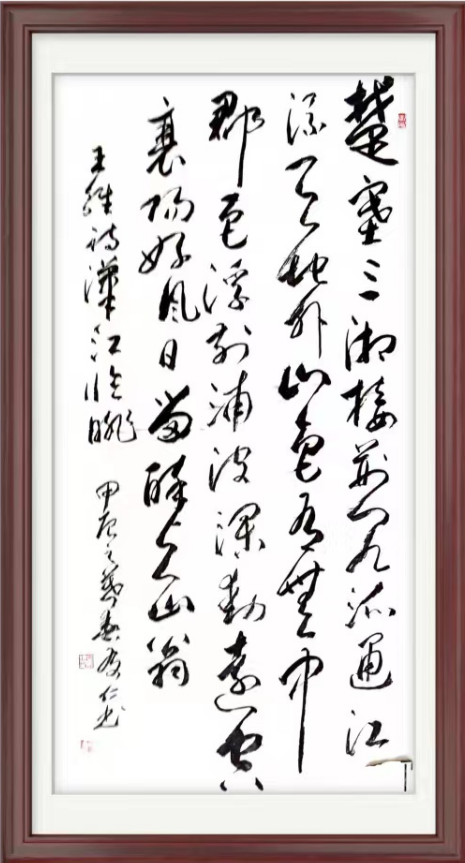 楚塞三湘接荆门九派通江
流天地外山色有無中
郡邑浮前浦波澜动遠空
襄阳好风日留醉与山翁
王維诗漢江临眺
甲辰之暮春 仁书